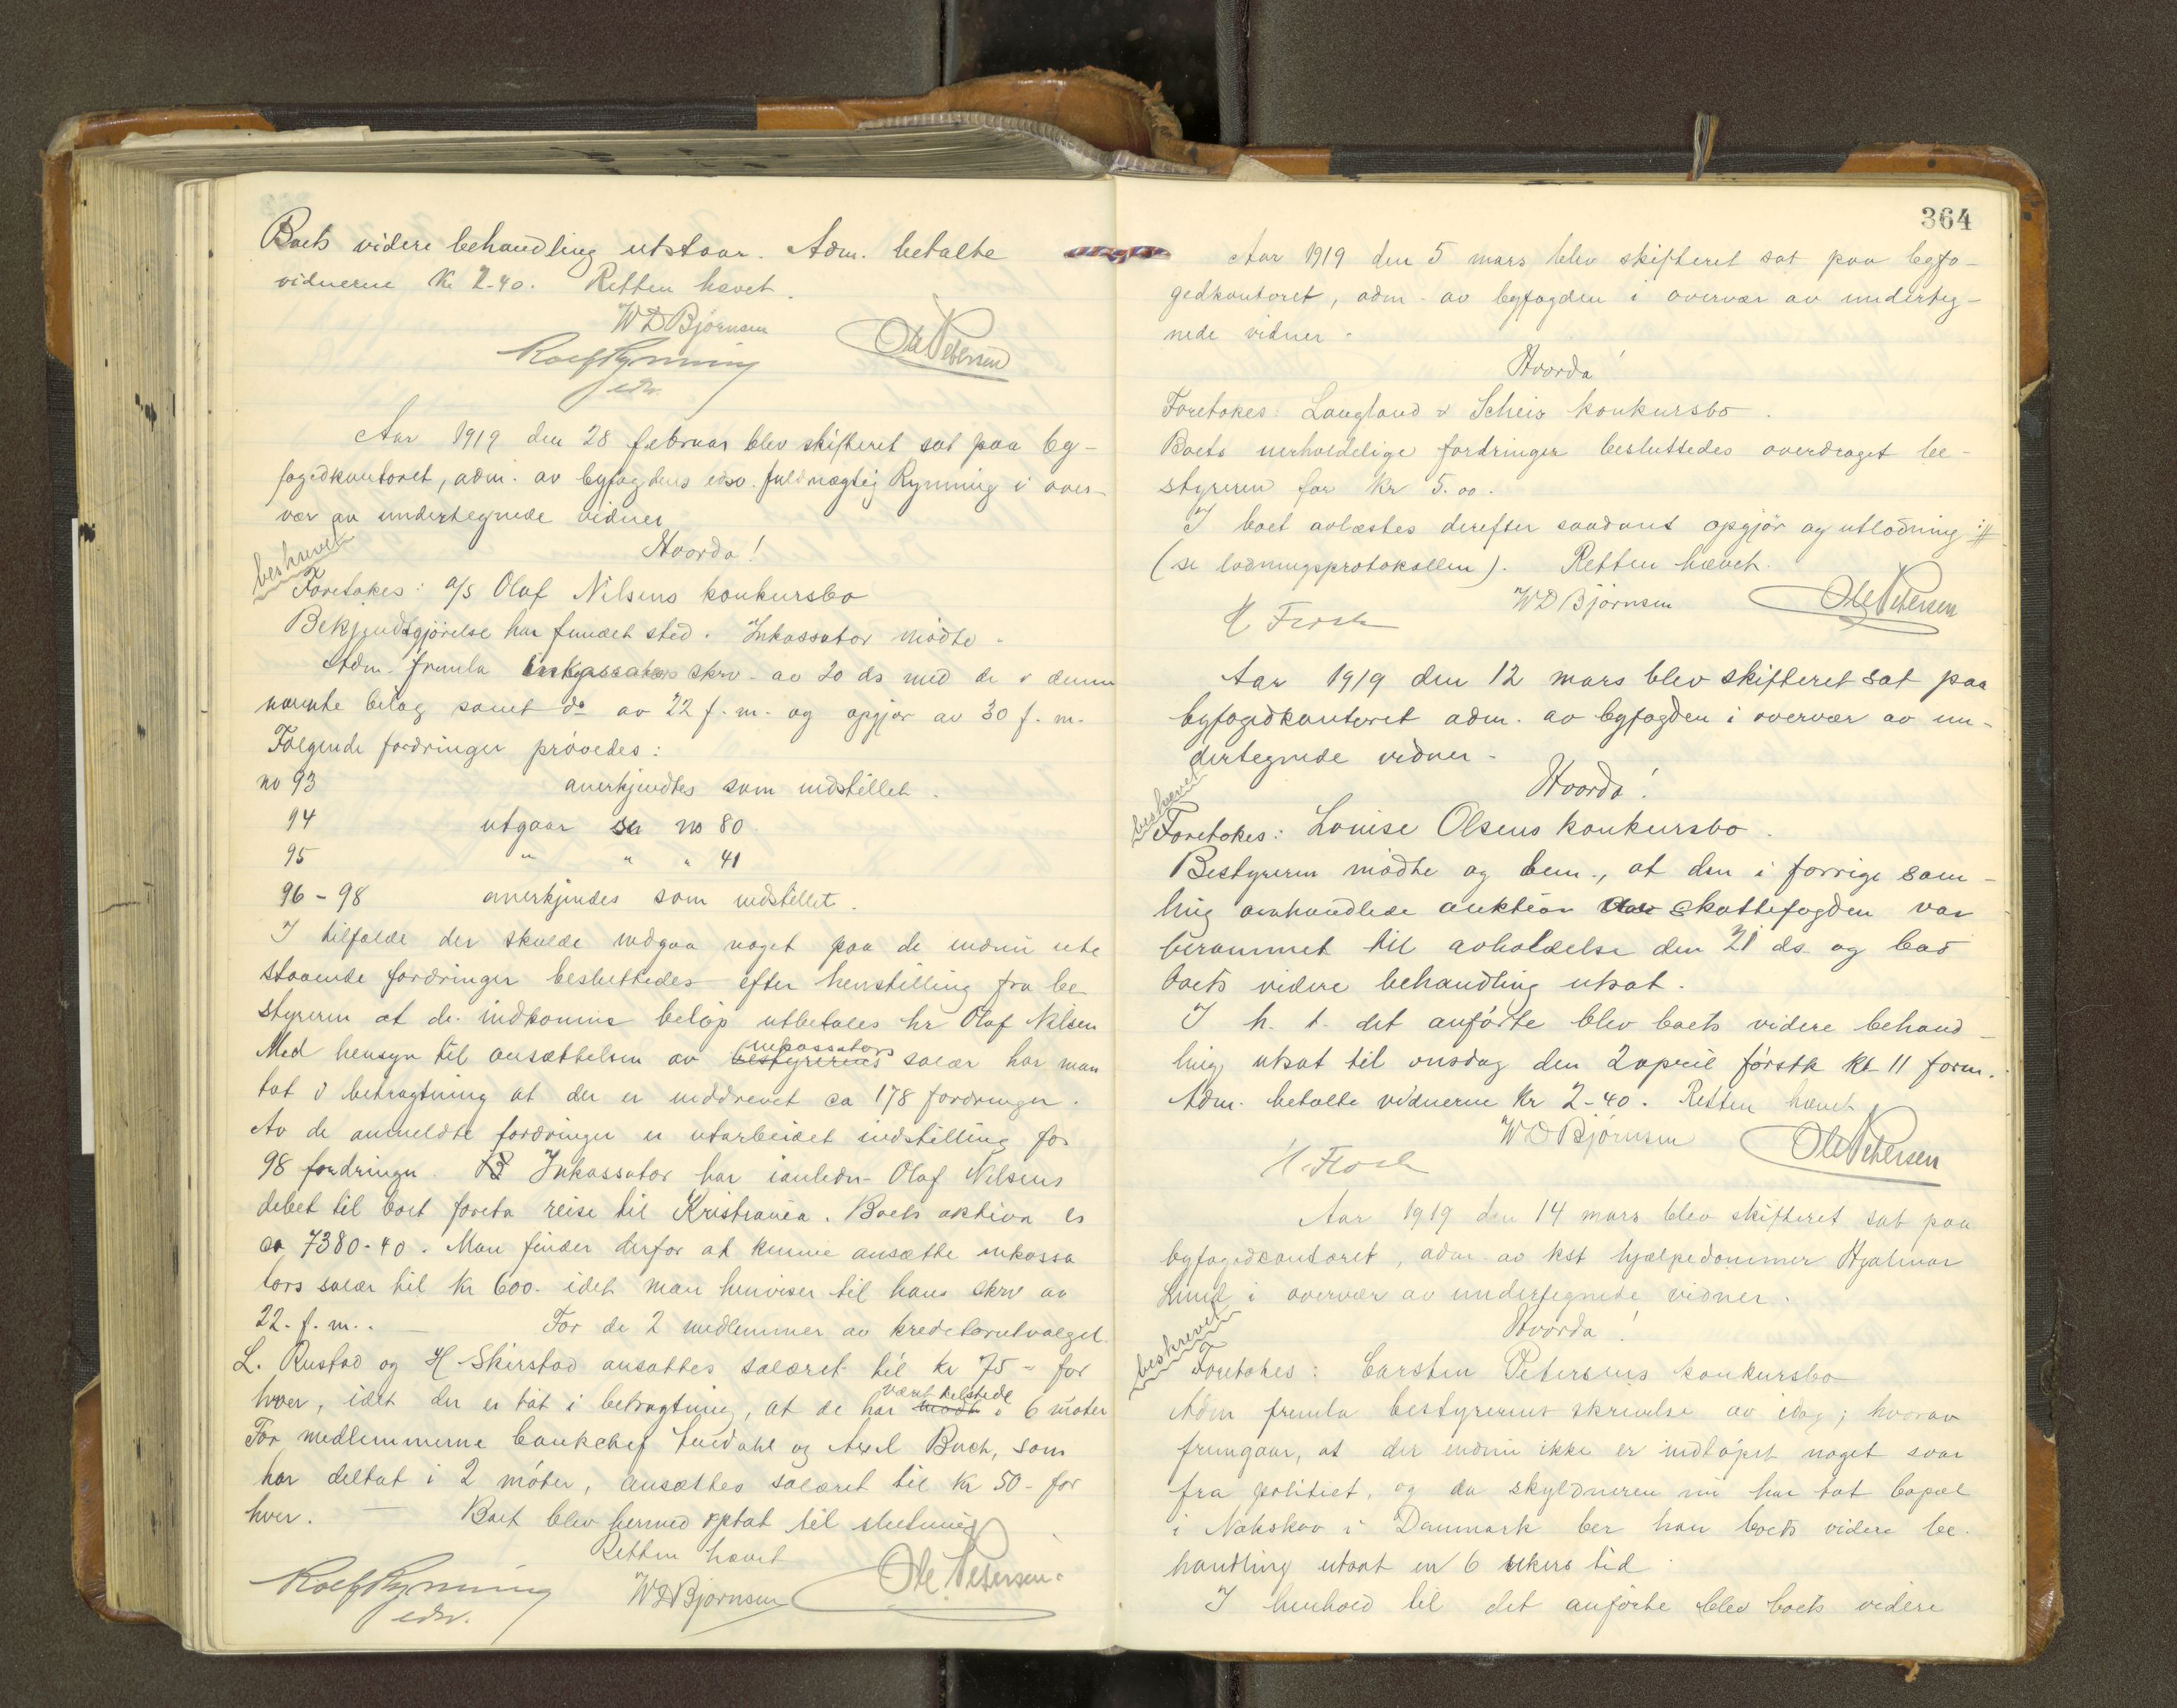 Boets videre behandling utstaar. Adm. betalte
vidnerne Kr 2-40. Retten hævet.
W D Bjørnsen
Rolf Rynning Ole Petersen
edsv.
Aar 1919 den 28 februar blev skifteret sat paa by-
fogedkontoret, adm. av byfogdens edsv. fuldmægtig Rynning i over-
vær av undertegnede vidner
Hvorda!
beskrevet
Foretokes: A/S Olaf Nilsens konkursbo
Bekjendtgjørelse har fundet sted. Inkassator mødte.
Adm. fremla inkassators skrv. av 20 ds med de i denne
nævnte bilag samt do av 22 f. m. og opgjør av 30 f. m.
Følgende fordringer prøvedes:
no 93 anerkjendtes som indstillet.
94 utgaar se no 80
95 " " " 41
96-98 anerkjendes som indstillet.
I tilfælde der skulde indgaa noget paa de endnu ute
staaende fordringer besluttedes efter henstilling fra be
styreren at de indkomne beløp utbetales hr Olaf Nilsen
Med hensyn til ansættelsen av bestyrerens inkassators salær har man
tat i betragtning at der er inddrevet ca 178 fordringer.
Av de anmeldte fordringer er utarbeidet indstilling for
98 fordringer. Inkassator har i anledn. Olaf Nilsens
debet til boet foreta reise til Kristiania. Boets aktiva er
ca 7380-40. Man finder derfor at kunne ansætte inkassa
tors salær til Kr 600. idet man henviser til hans skrv av
22. f. m.. — For de 2 medlemmer av kreditorutvalget
L. Rustad og H Skirstad ansattes salæret til kr 75 - for
hver, idet der er tat i betragtning, at de har mødt været tilstede i 6 møter
For medlemmerne bankchef Lindahl og Axel Buch, som
har deltat i 2 møter, ansættes salæret til Kr 50 - for
hver. — Boet blev hermed optat til slutning
Retten hævet
Rolf Rynning W D Bjørnsen Ole Petersen.
edsv.
364
Aar 1919 den 5 mars blev skifteret sat paa byfo-
gedkontoret, adm. av byfogden i overvær av underteg-
nede vidner.
Hvorda!
Foretokes: Langland & Scheis konkursbo.
Boets uerholdelige fordringer besluttedes overdraget be-
styreren for Kr 5.00.
I boet avlæstes derefter saadant opgjør og utlodning :#
(se lodningsprotokollen). Retten hævet.
W D Bjørnsen Ole Petersen
H Frosh
Aar 1919 den 12 mars blev skifteret sat paa
byfogedkontoret adm. av byfogden i overvær av un-
dertegnede vidner -
Hvorda!
beskrevet
Foretokes: Louise Olsens konkursbo.
Bestyreren mødte og bem., at den i forrige sam-
ling omhandlede auktion skattefogden var
berammet til avholdelse den 21 ds. og bad
boets videre behandling utsat.
I h. t. det anførte blev boets videre behand-
ling utsat til onsdag den 2 april førstk kl 11 form.
Adm. betalte vidnerne Kr 2-40. Retten hævet
W D Bjørnsen Ole Petersen
H. Frosh
Aar 1919 den 14 mars blev skifteret sat paa
byfogedkontoret, adm. av kst hjælpedommer Hjalmar
Lund i overvær av undertegnede vidner.
Hvorda!
beskrevet
Foretokes: Carsten Petersens konkursbo
Adm fremla bestyrerens skrivelse av idag, hvorav
fremgaar, at der endnu ikke er indløpet noget svar
fra politiet, og da skyldneren nu har tat bopæl
i Nakskov i Danmark ber han boets videre be-
handling utsat en 6 ukers tid.
I henhold til det anførte blev boets videre